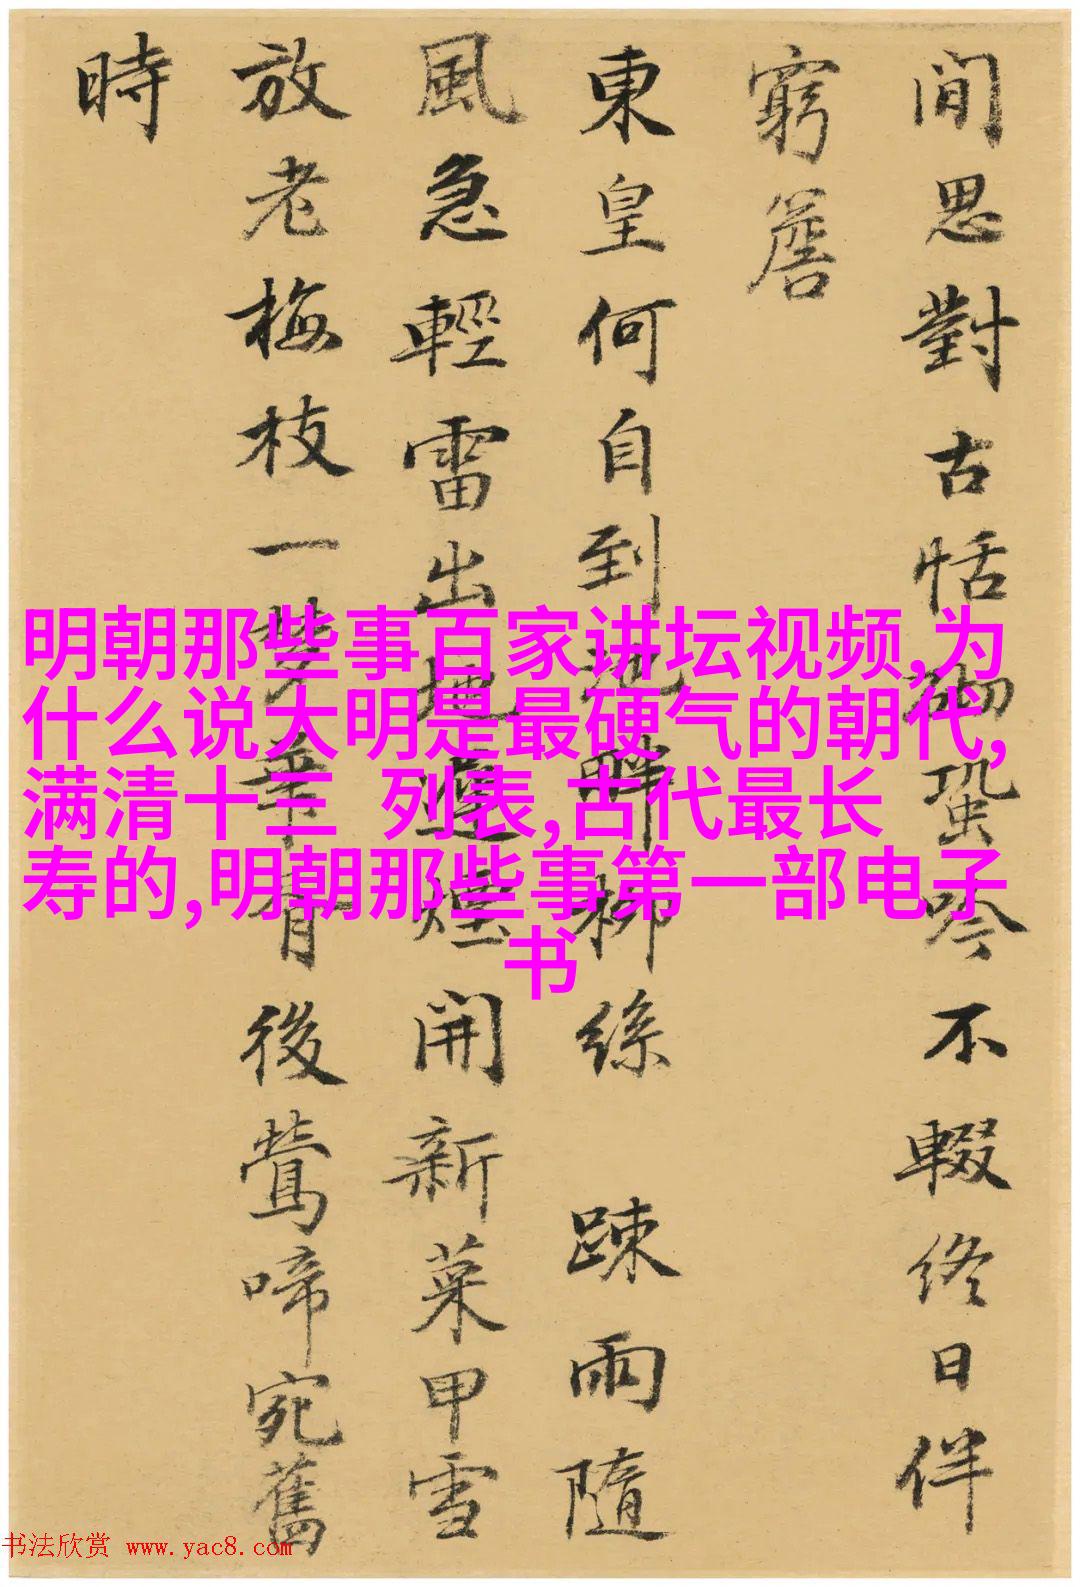 閒思對古恬砌蛩吟不輟終日伴
窮簷
東皇何自到池畔柳絲 疎雨隨
風急輕雷出地遲煙開新菜甲雪
放老梅枝一夢華胥後鶯啼宛舊
時
明朝那些事百家讲坛视频,为
什么说大明是最硬气的朝代,
满清十三 列表,古代最长
寿的,明朝那些事第一部电子
书
书法欣赏 www.yac8.com